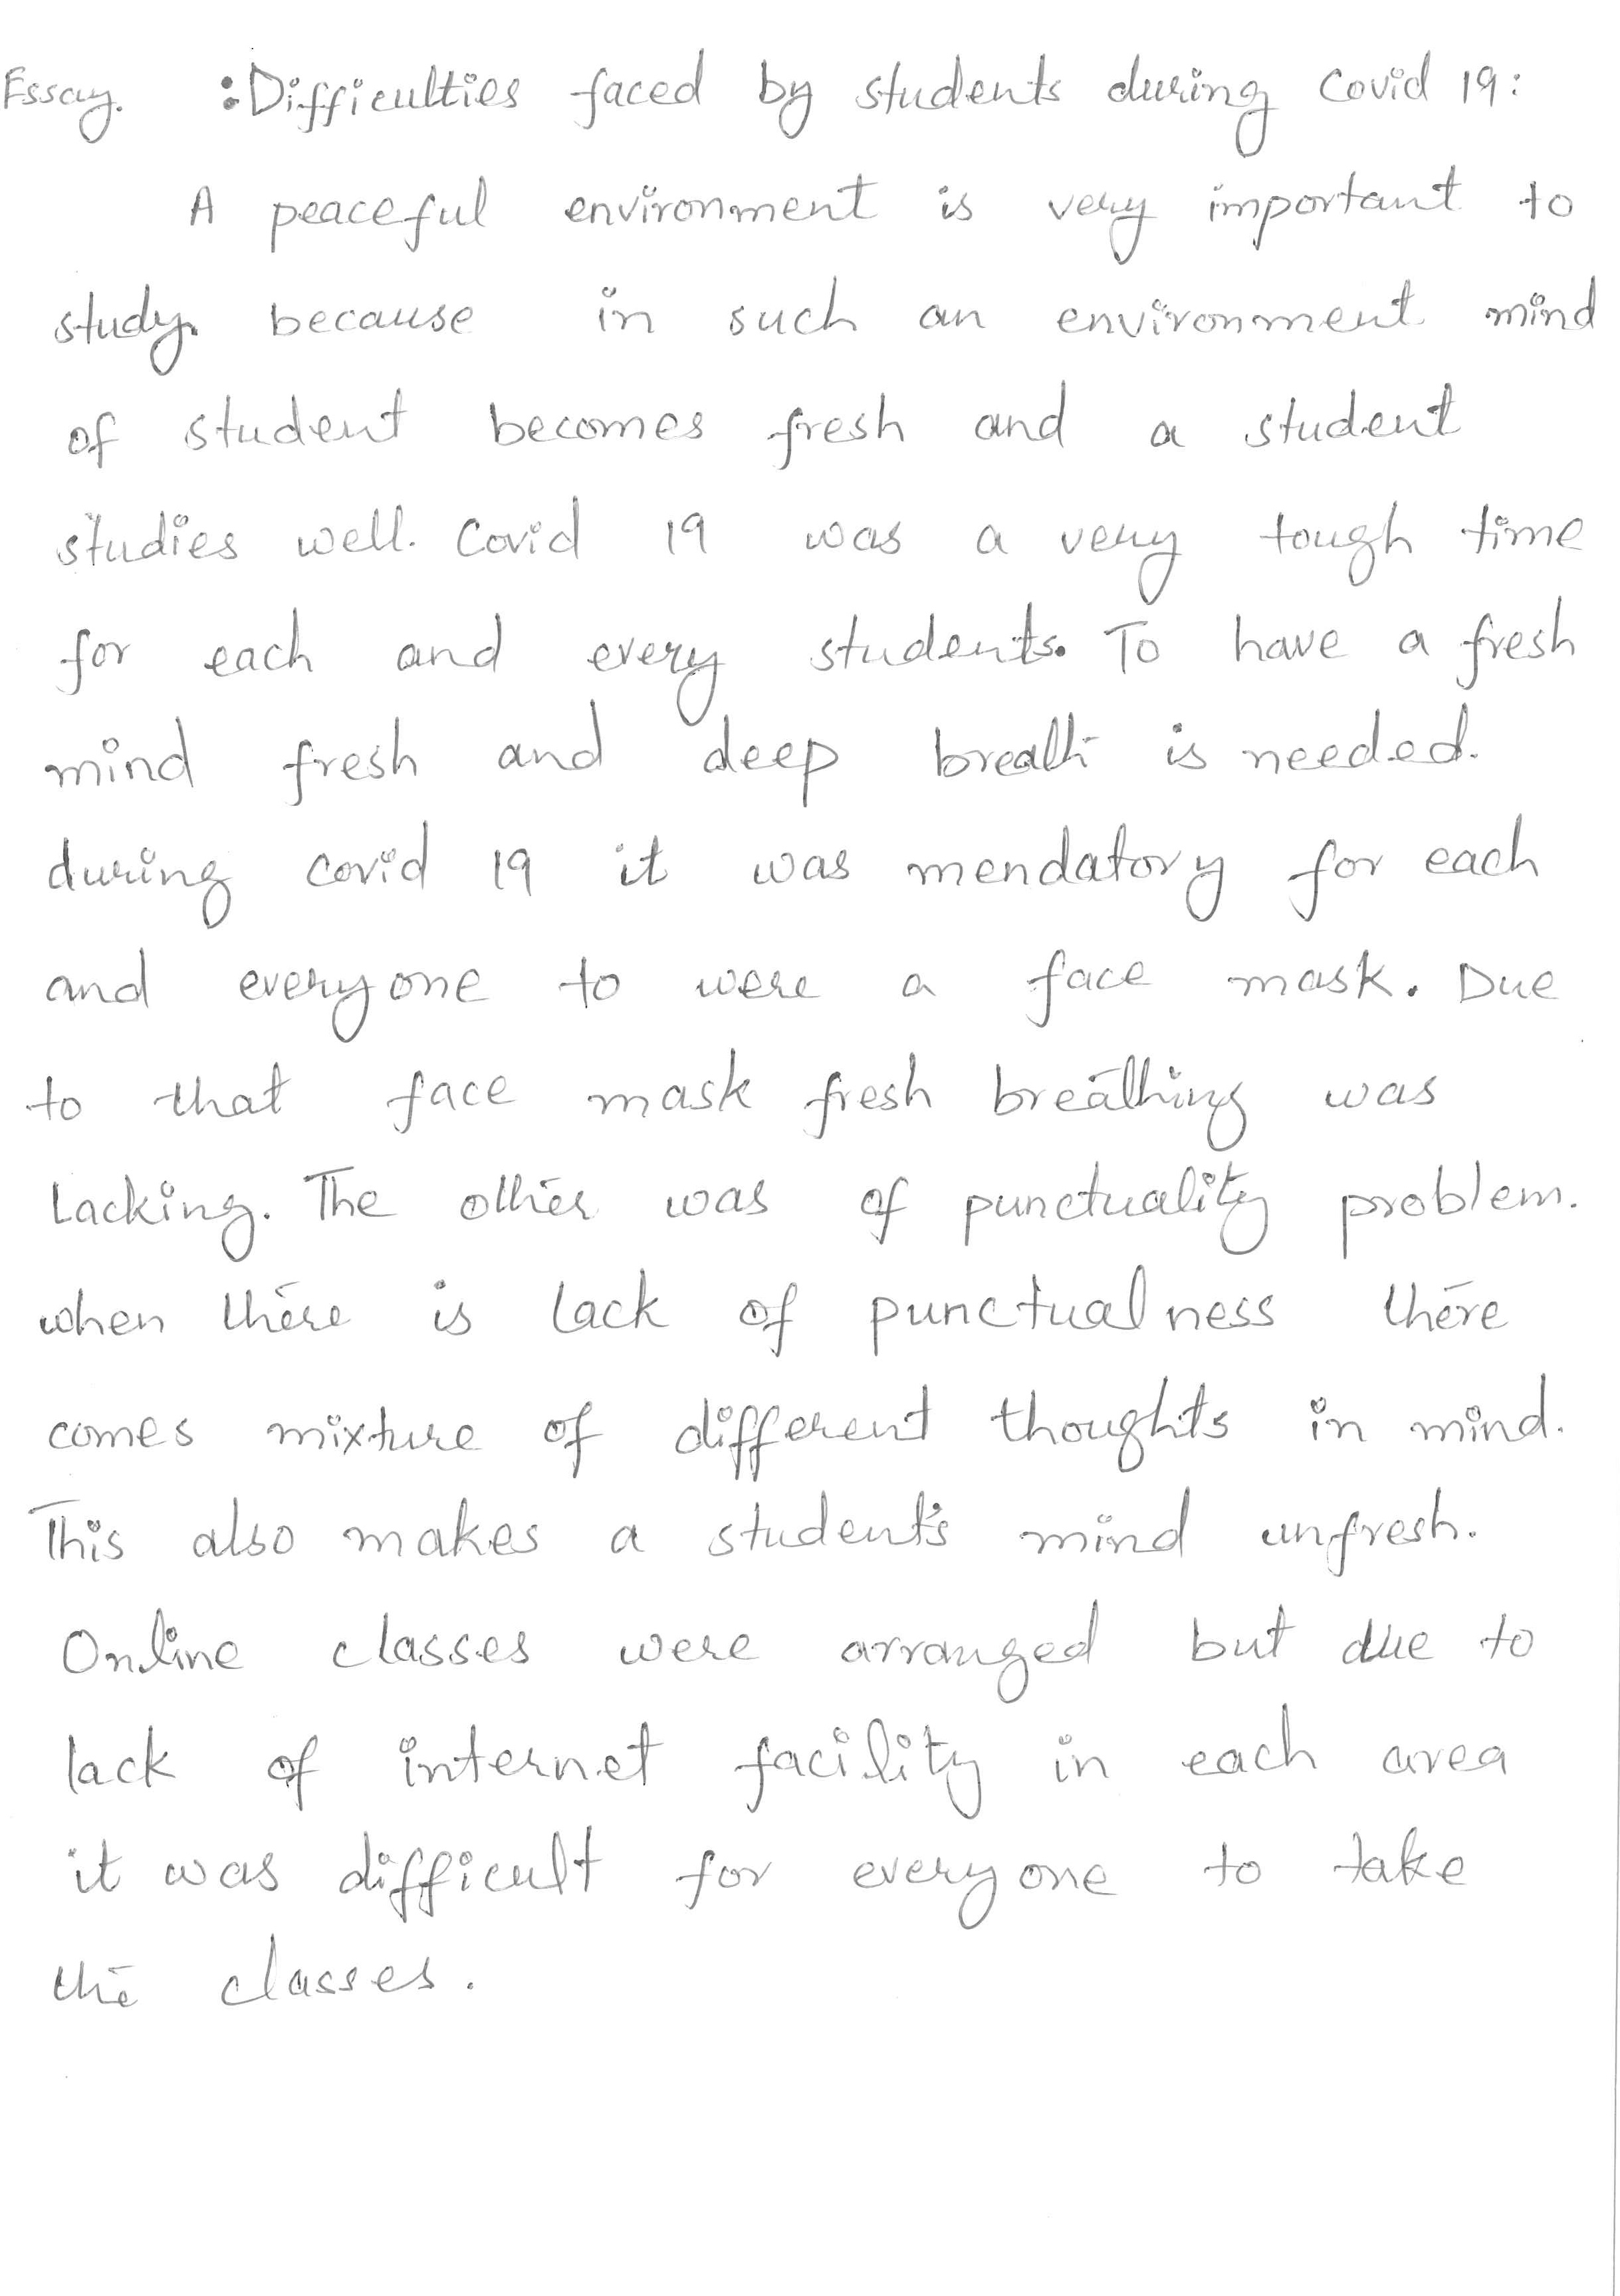 Essay. :Difficulties faced by students during Covid 19:
A peaceful environment is very important to
study. because in such an environment mind
of student becomes fresh and a student
studies well. Covid 19 was a very tough time
for each and every students. To have a fresh
mind fresh and deep breath is needed.
during covid 19 it was mendatory for each
and everyone to were a face mask. Due
to that face mask fresh breathing was
Lacking. The other was of punctuality problem.
when there is lack of punctualness there
comes mixture of different thoughts in mind.
This also makes a student's mind unfresh.
Online classes were arranged but due to
lack of internet facility in each area
it was difficult for everyone to take
the classes.